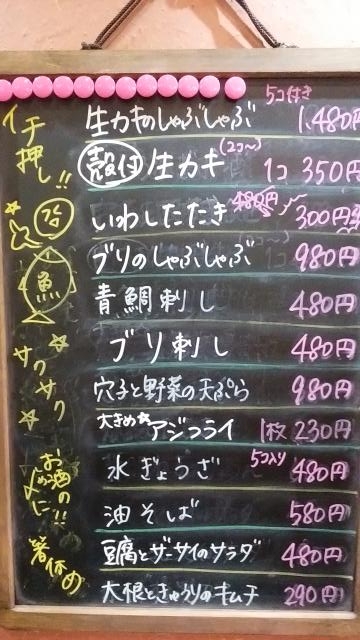 イチ押し!!
5コ付き
生カキのしゃぶしゃぶ 1,480円
殻付 生カキ (2コ〜) 1コ 350円
いわしたたき 480円 300円
ブリのしゃぶしゃぶ 980円
魚
青鯛刺し 480円
ブリ刺し 480円
サクサク
穴子と野菜の天ぷら 980円
大きめ☆アジフライ 1枚 230円
お酒の〆に!!
水ぎょうざ 5コ入り 480円
油そば 580円
箸休め
豆腐とザーサイのサラダ 480円
大根ときゅうりのキムチ 290円